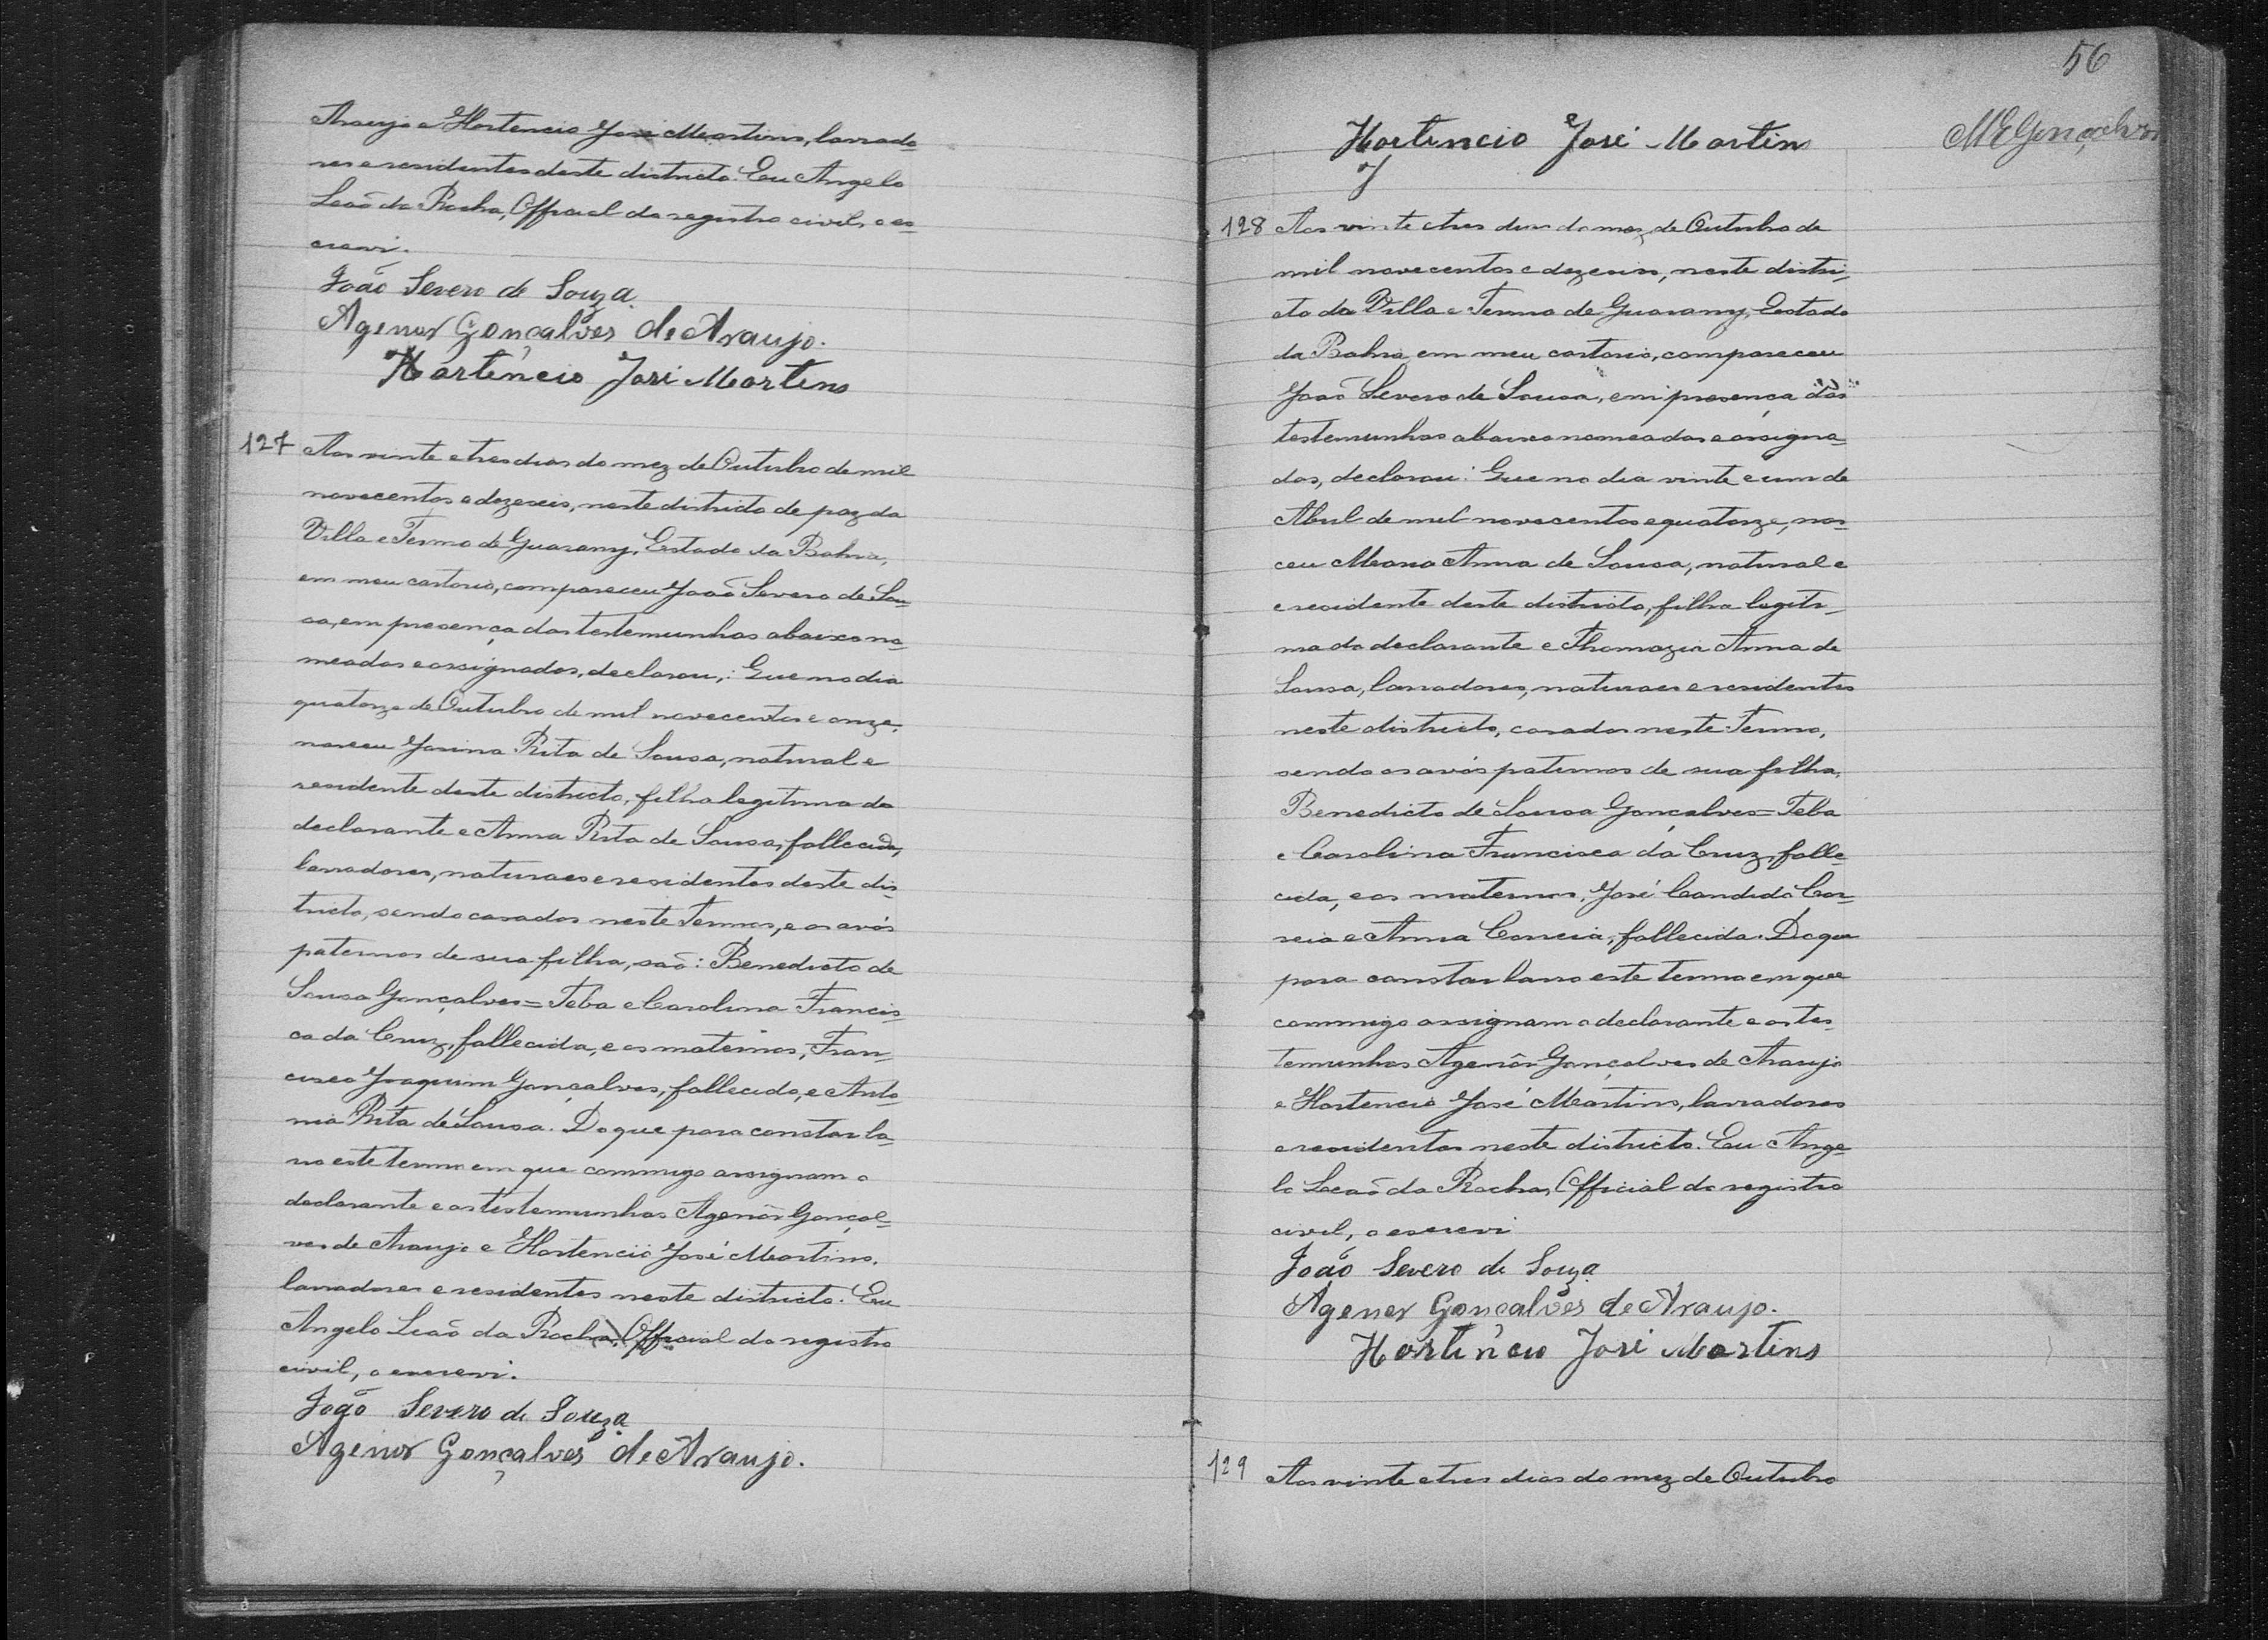 Araujo e Hortencio José Martins, lavrado-
res e residentes deste districto. Eu Angelo
Leaõ da Rocha, Official do registro civil, o es-
crevi.
João Severo de Souza
Agenor Gonçalves de Araujo.
Hortencio José Martins
127 Aos vinte e tres dias do mez de Outubro de mil
novecentos e dezeseis, neste districto de paz da
Villa e Termo de Guarany, Estado da Bahia,
em meu cartorio, compareceu João Severo de Sou-
sa, em presença das testemunhas abaixo no-
meadas e assignadas, declarou,: Que no dia
quatorze de Outubro de mil novecentos e onze,
nasceu Josina Rita de Sousa, natural e
residente deste districto, filha legitima do
declarante e Anna Rita de Sousa, fallecida,
lavradores, naturaes e residentes deste dis-
tricto, sendo casados neste Termo, e os avós
paternos de sua filha, saõ: Benedicto de
Sousa Gonçalves = Teba e Carolina Francis-
ca da Cruz, fallecida, e os maternos, Fran-
cisco Joaquim Gonçalves, fallecido, e Anto-
nia Rita de Sousa. Do que para constar la-
vro este termo em que commigo assignam o
declarante e as testemunhas Agenôr Gonçal-
ves de Araujo e Hortencio José Martins,
lavradores e residentes neste districto. Eu
Angelo Leaõ da Rocha, Official do registro
civil, o escrevi.
João Severo de Souza
Agenor Gonçalves de Araujo.
56
Hortencio José Martins
MEGonçalves
128 Aos vinte e tres dias do mez de Outubro de
mil novecentos e dezeseis, neste distri-
cto da Villa e Termo de Guarany, Estado
da Bahia, em meu cartorio, compareceu
Joaõ Severo de Sousa, em presença das
testemunhas abaixo nomeadas e assigna-
das, declarou: Que no dia vinte e um de
Abril de mil novecentos e quatorze, nas-
ceu Maria Anna de Sousa, natural e
e residente deste districto, filha legiti-
ma do declarante e Thomazia Anna de
Sousa, lavradores, naturaes e residentes
neste districto, casados neste Termo,
sendo os avós paternos de sua filha,
Benedicto de Sousa Gonçalves = Teba
e Carolina Francisca da Cruz, falle-
cida, e os maternos, José Candido Cor-
reia e Anna Correia, fallecida. Do que
para constar lavro este termo em que
commigo assignam o declarante e as tes-
temunhas Agenôr Gonçalves de Araujo
e Hortencio José Martins, lavradores
e residentes neste districto. Eu Ange-
lo Leaõ da Rocha, Official do registro
civil, o escrevi
João Severo de Souza
Agenor Gonçalves de Araujo.
Hortencio José Martins
129 Aos vinte e tres dias do mez de Outubro